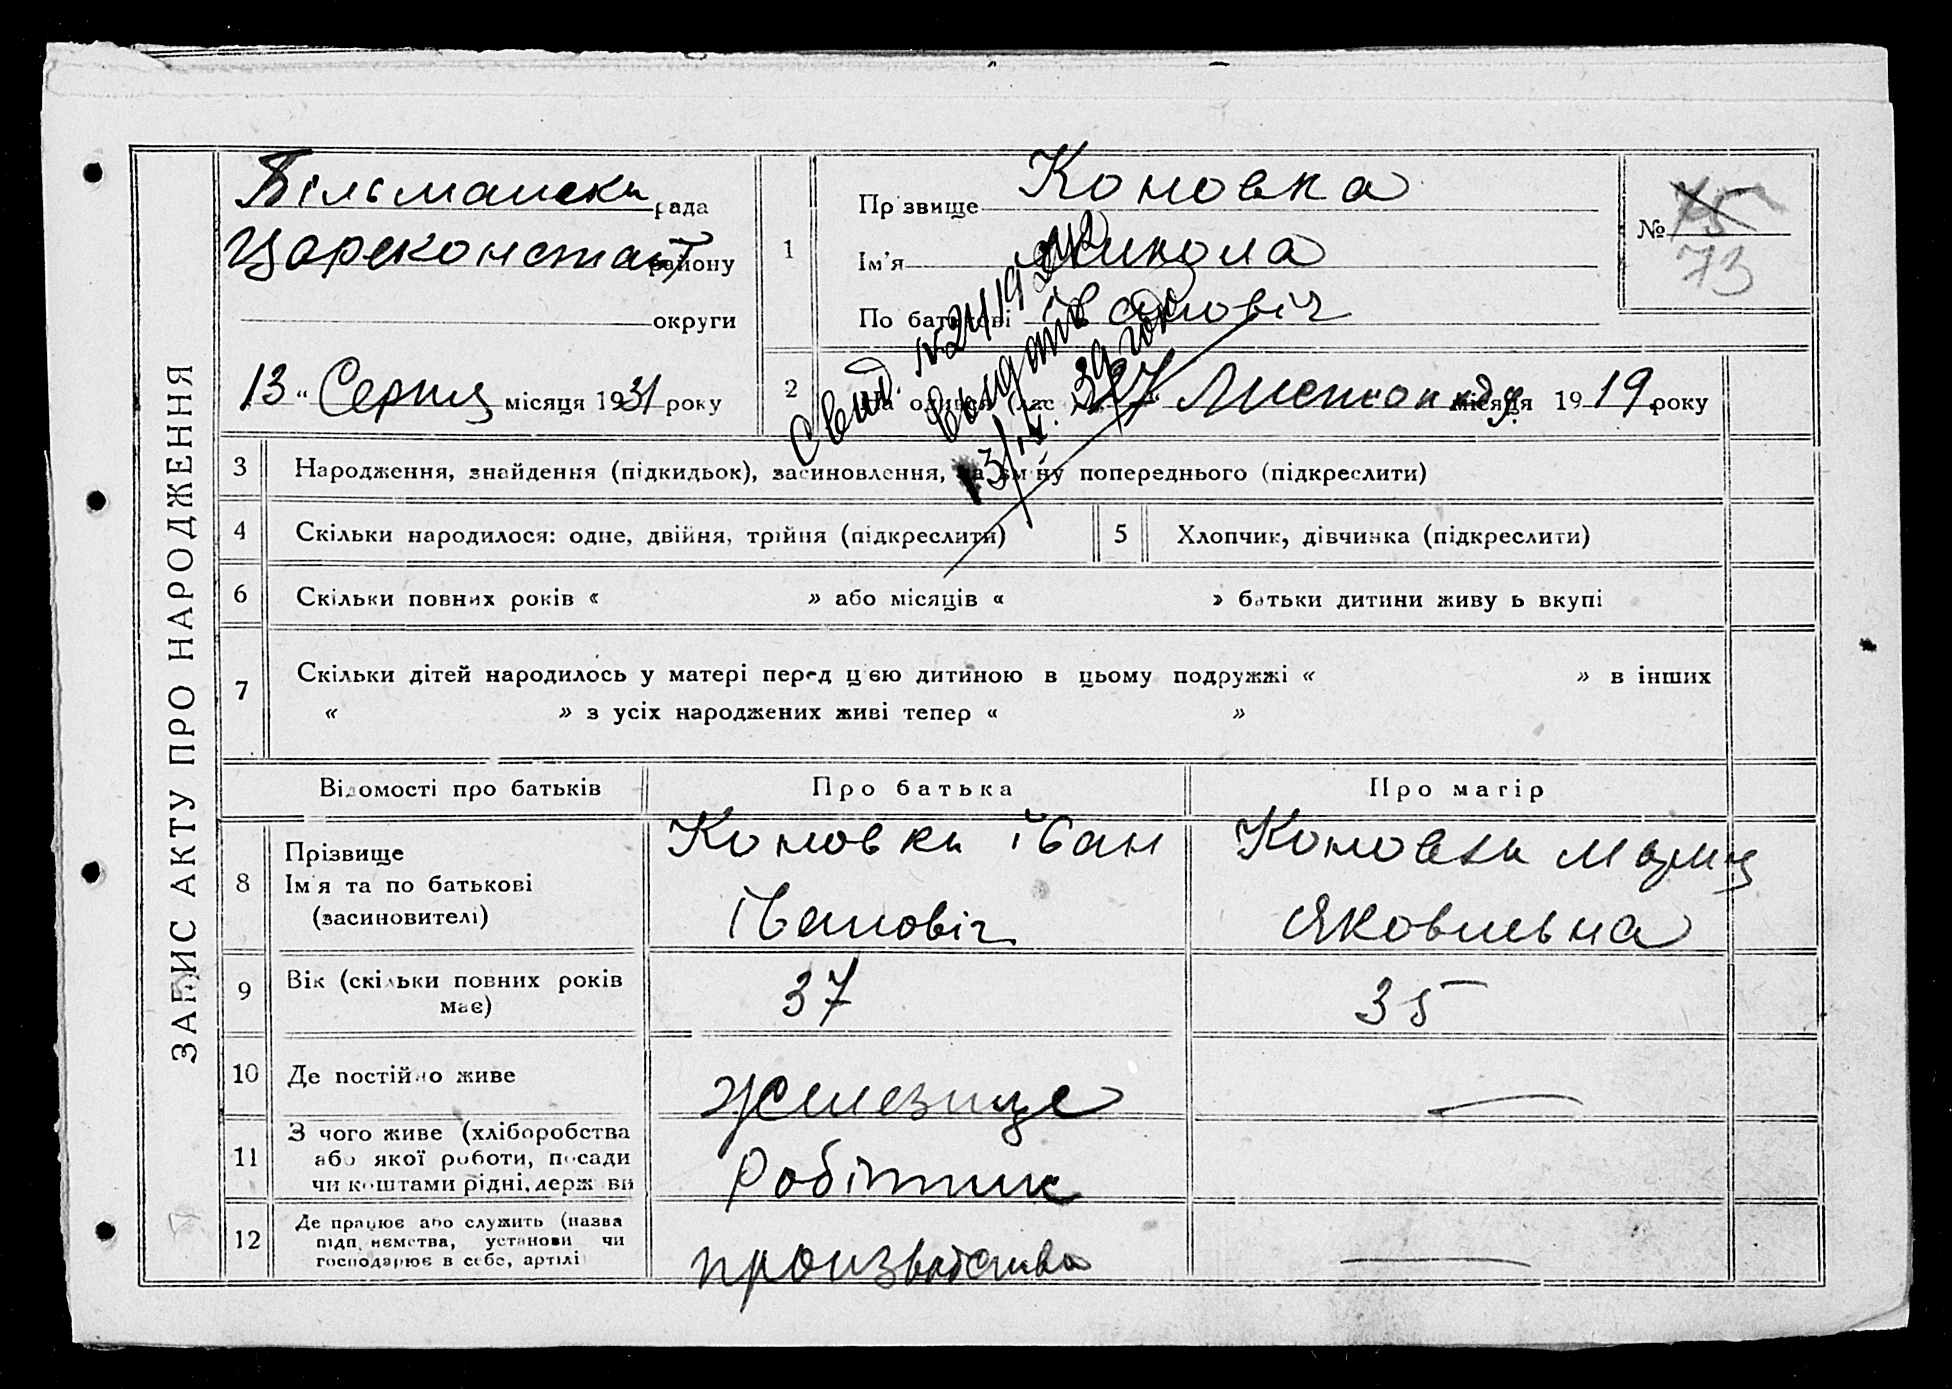 ЗАПИС АКТУ ПРО НАРОДЖЕННЯ
Більманска рада
Цареконстант району
округи
13 " Серпня місяця 1931 року
1
Прізвище Коновка
Ім'я Микола
По батькові Івановіч
№ 75
73
2
27 Листопаду місяця 1919 року
Свид.
Выдано
3 Народження, знайдення (підкидьок), засиновлення, на зміну попереднього (підкреслити)
4 Скільки народилося: одне, двійня, трійня (підкреслити)
5 Хлопчик, дівчинка (підкреслити)
6 Скільки повних років « » або місяців « » батьки дитини живуть вкупі
7 Скільки дітей народилось у матері перед цією дитиною в цьому подружжі « » в інших
« » з усіх народжених живі тепер « »
Відомості про батьків Про батька Про матір
8 Прізвище
Ім'я та по батькові
(засиновителі)
Коновка Іван
Івановіч
Коновка Мария
Яковлевна
9 Вік (скільки повних років
має)
37 35
10 Де постійно живе
11 З чого живе (хліборобства
або якої роботи, посади
чи коштами рідні, держави
Робітник
12 Де працює або служить (назва
підприємства, установи чи
господарює в себе, артілі
производства